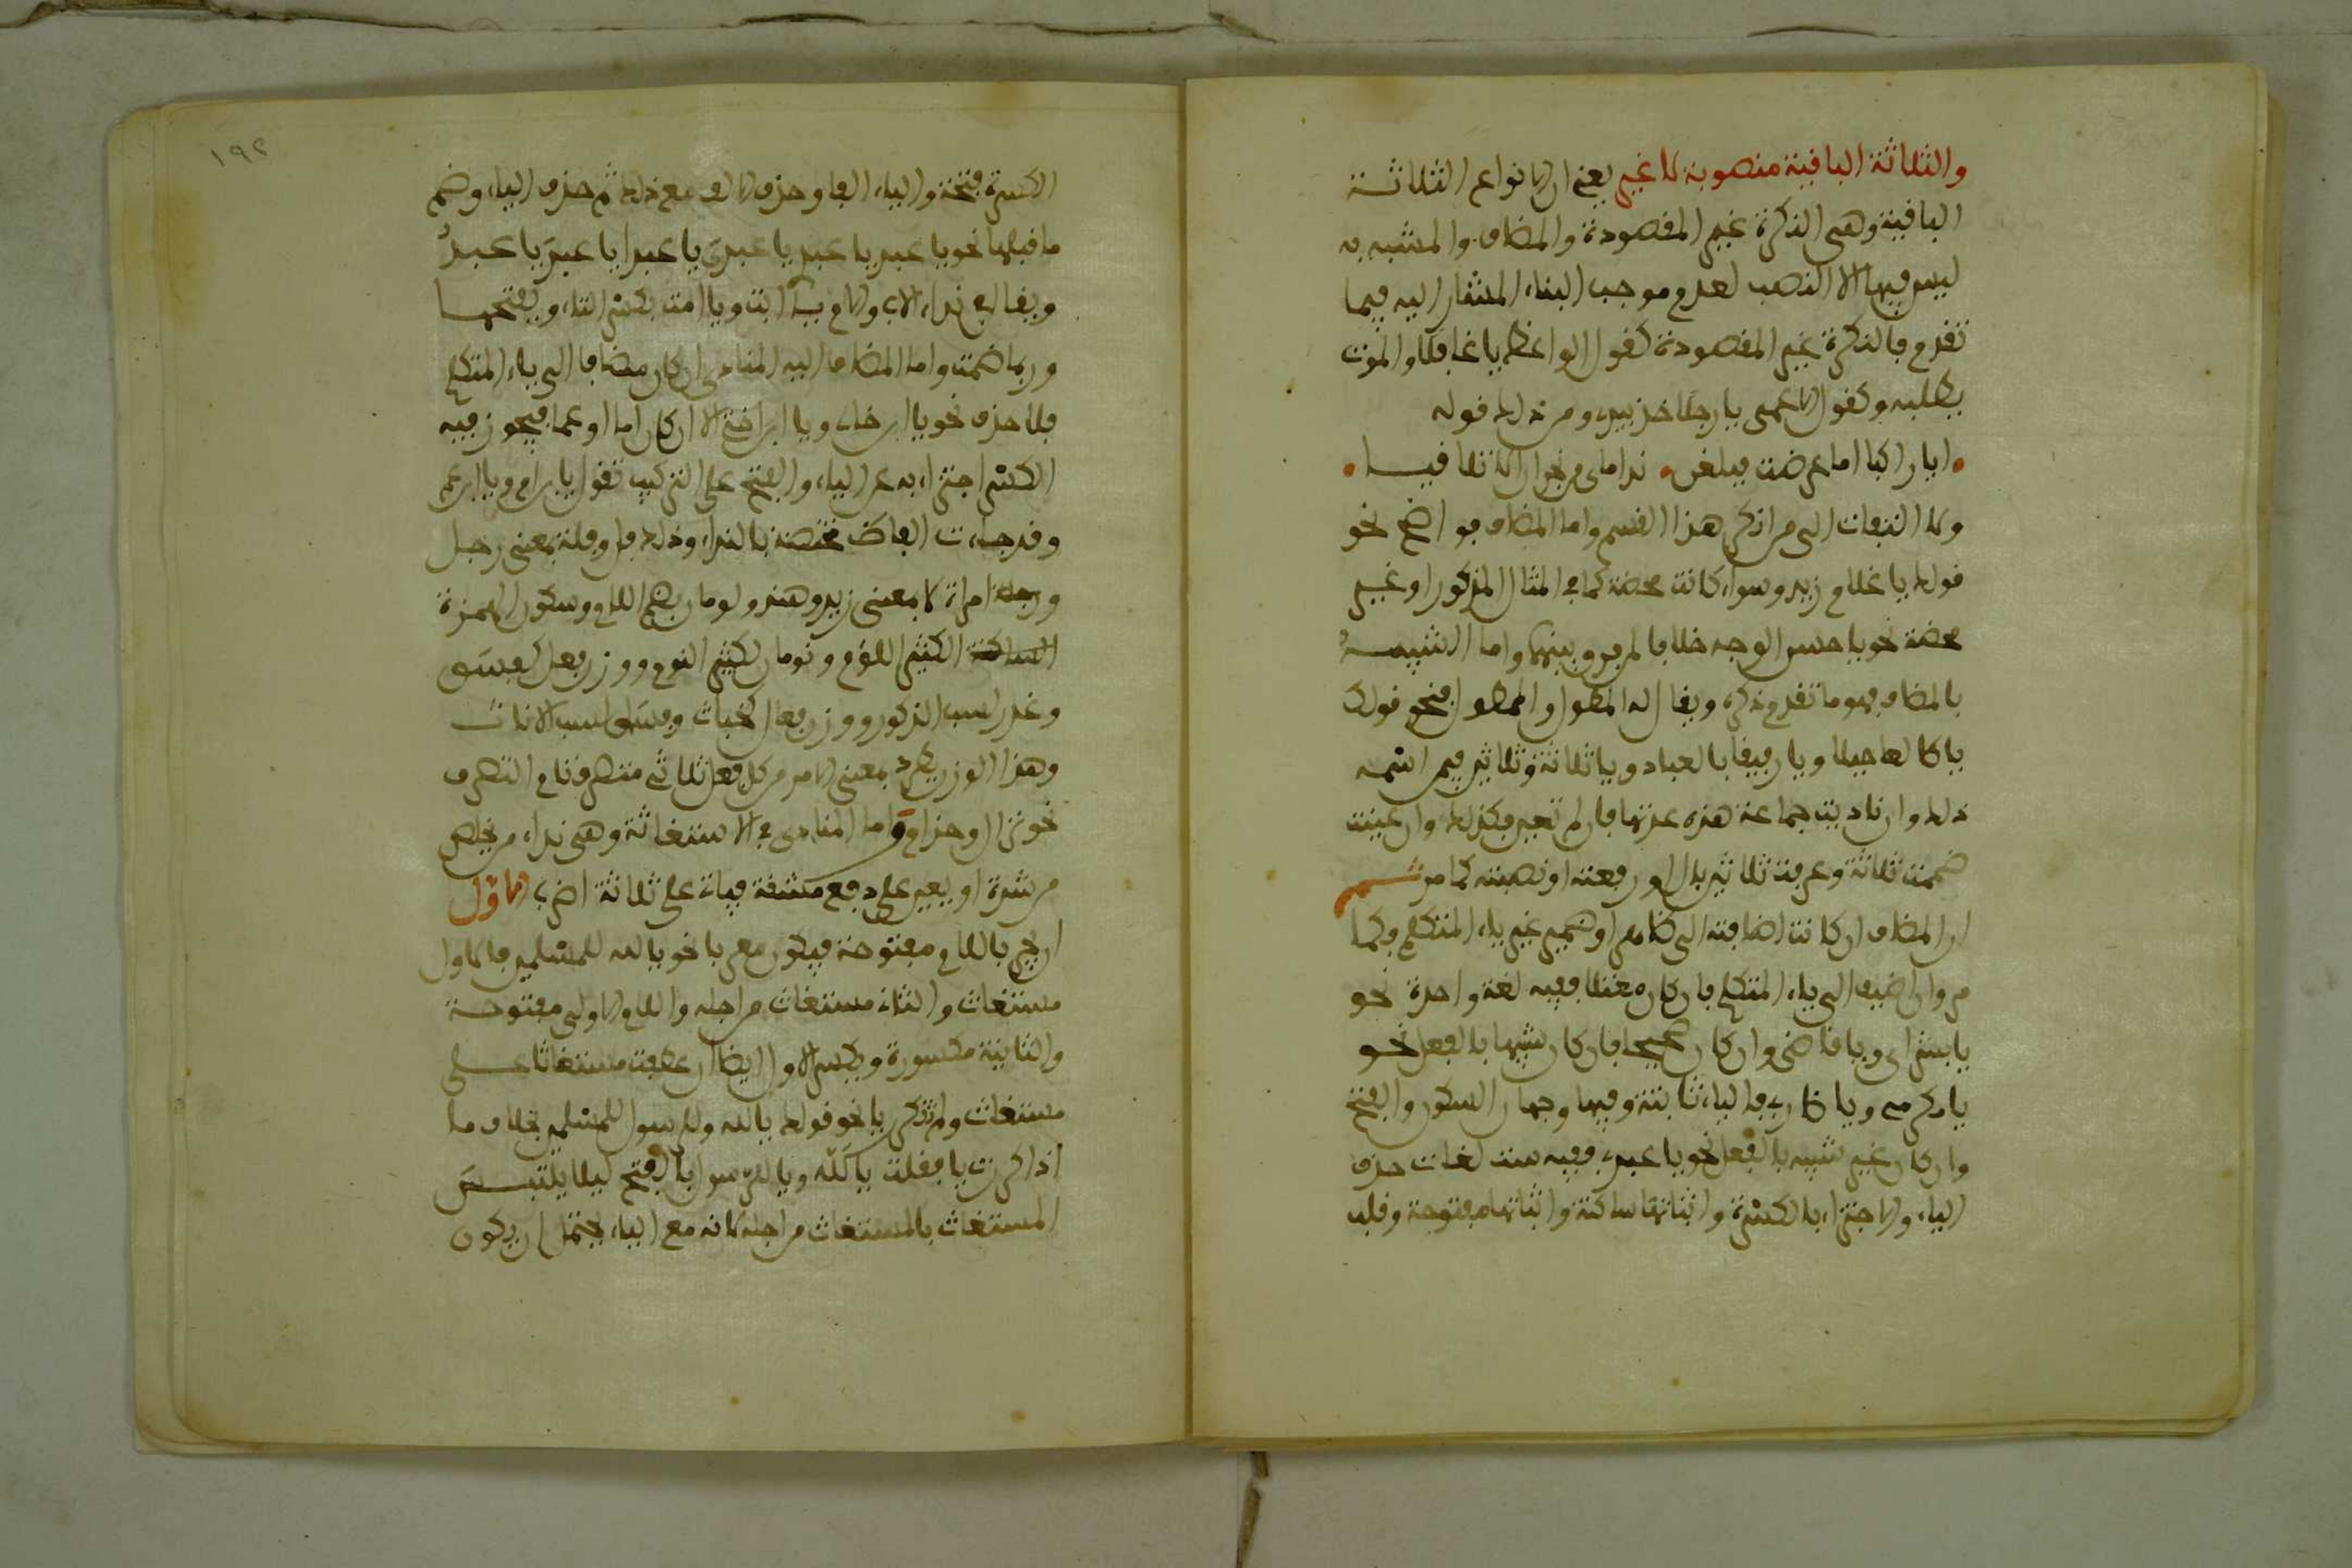 والثلاثة الباقية منصوبة لا غير يعني ان الانواع الثلاثة
الباقية وهي النكرة غير المقصودة والمضاف والمشبه به
ليس فيها الا النصب لعدم موجب البناء المشار اليه فيما
تقدم فالنكرة غير المقصودة كقول الواعظ يا غافلا والموت
يطلبه وكقول الاعمى يا رجلا خذ بيدي ومن ذلك قوله
ايا راكبا اما عرضت فبلغن نداماي من نجران الا تلاقيا
ولا التفات الى من انكر هذا القسم واما المضاف فواضح نحو
قولك يا غلام زيد وسواء كانت محضة كما في المثال المذكور او غير
محضة نحو يا حسن الوجه خلافا لمن فرق بينهما واما الشبيه
بالمضاف فهو ما تقدم ذكره ويقال له المطول والممطول فنحو قولك
يا طالعا جبلا ويا رفيقا بالعباد ويا ثلاثة وثلاثين فيمن اسمه
ذلك وان ناديت جماعة هذه عدتها فان لم تعين فكذلك وان عينت
ضممت ثلاثة وعرفت ثلاثين بال ورفعته او نصبته كما مر
ان المضاف ان كانت اضافته الى ظاهر او ضمير غير ياء المتكلم فكما
مر وان اضيف الى ياء المتكلم فان كان معتلا ففيه لغة واحدة نحو
يا بشراي ويا قاضي وان كان صحيحا فان كان شبيها بالفعل نحو
يا مكرمي ويا ضاربي فالياء ثابتة وفيها وجهان السكون والفتح
وان كان غير شبيه بالفعل نحو يا عبدي ففيه ست لغات حذف
الياء والاجتزاء بالكسرة واثباتها ساكنة واثباتها مفتوحة وقلب
١٩٢
الكسرة فتحة والياء الفا وحذف الالف مع ذلك ثم حذف الياء وضم
ما قبلها نحو يا عبد يا عبدي يا عبديَ يا عبدا يا عبدَ يا عبدُ
ويقال في نداء الاب والام يا ابت ويا امت بكسر التاء وبفتحها
وربما ضمت واما المضاف اليه المنادى ان كان مضافا الى ياء المتكلم
فلا حذف نحو يا ابن خالي ويا ابن اخي الا ان كان اما او عما فيجوز فيه
الكسر اجتزاء به عن الياء والفتح على التركيب تقول يا ابن ام ويا ابن عم
وقد جاءت الفاظ مختصة بالنداء وذلك فل وفلة بمعنى رجل
وامراة لا بمعنى زيد وهند ولومان بضم اللام وسكون الهمزة
الكثير اللؤم ونومان لكثير النوم ووزن فعل كفسق
وغدر لسب الذكور ووزن فعال كخباث وفساق لسب الاناث
وهذا الوزن يطرد بمعنى الامر من كل فعل ثلاثي متصرف تام التصرف
نحو نزال وحذام واما المنادى في الاستغاثة وهي نداء من يخلص
من شدة او يعين على دفع مشقة فيات على ثلاثة اضرب الاول
ان يجر باللام مفتوحة فيكون معربا نحو يا لله للمسلمين فالاول
مستغاث والثاني مستغاث من اجله واللام الاولى مفتوحة
والثانية مكسورة وبكسر الاول ايضا ان عطفت مستغاثا على
مستغاث ولم تذكر يا نحو قولك يا لله وللرسول للمسلمين بخلاف ما
اذا كررت يا فقلت يا لله ويا للرسول بالفتح ليلا يلتبس
المستغاث بالمستغاث من اجله لانه مع الياء يحتمل ان يكون